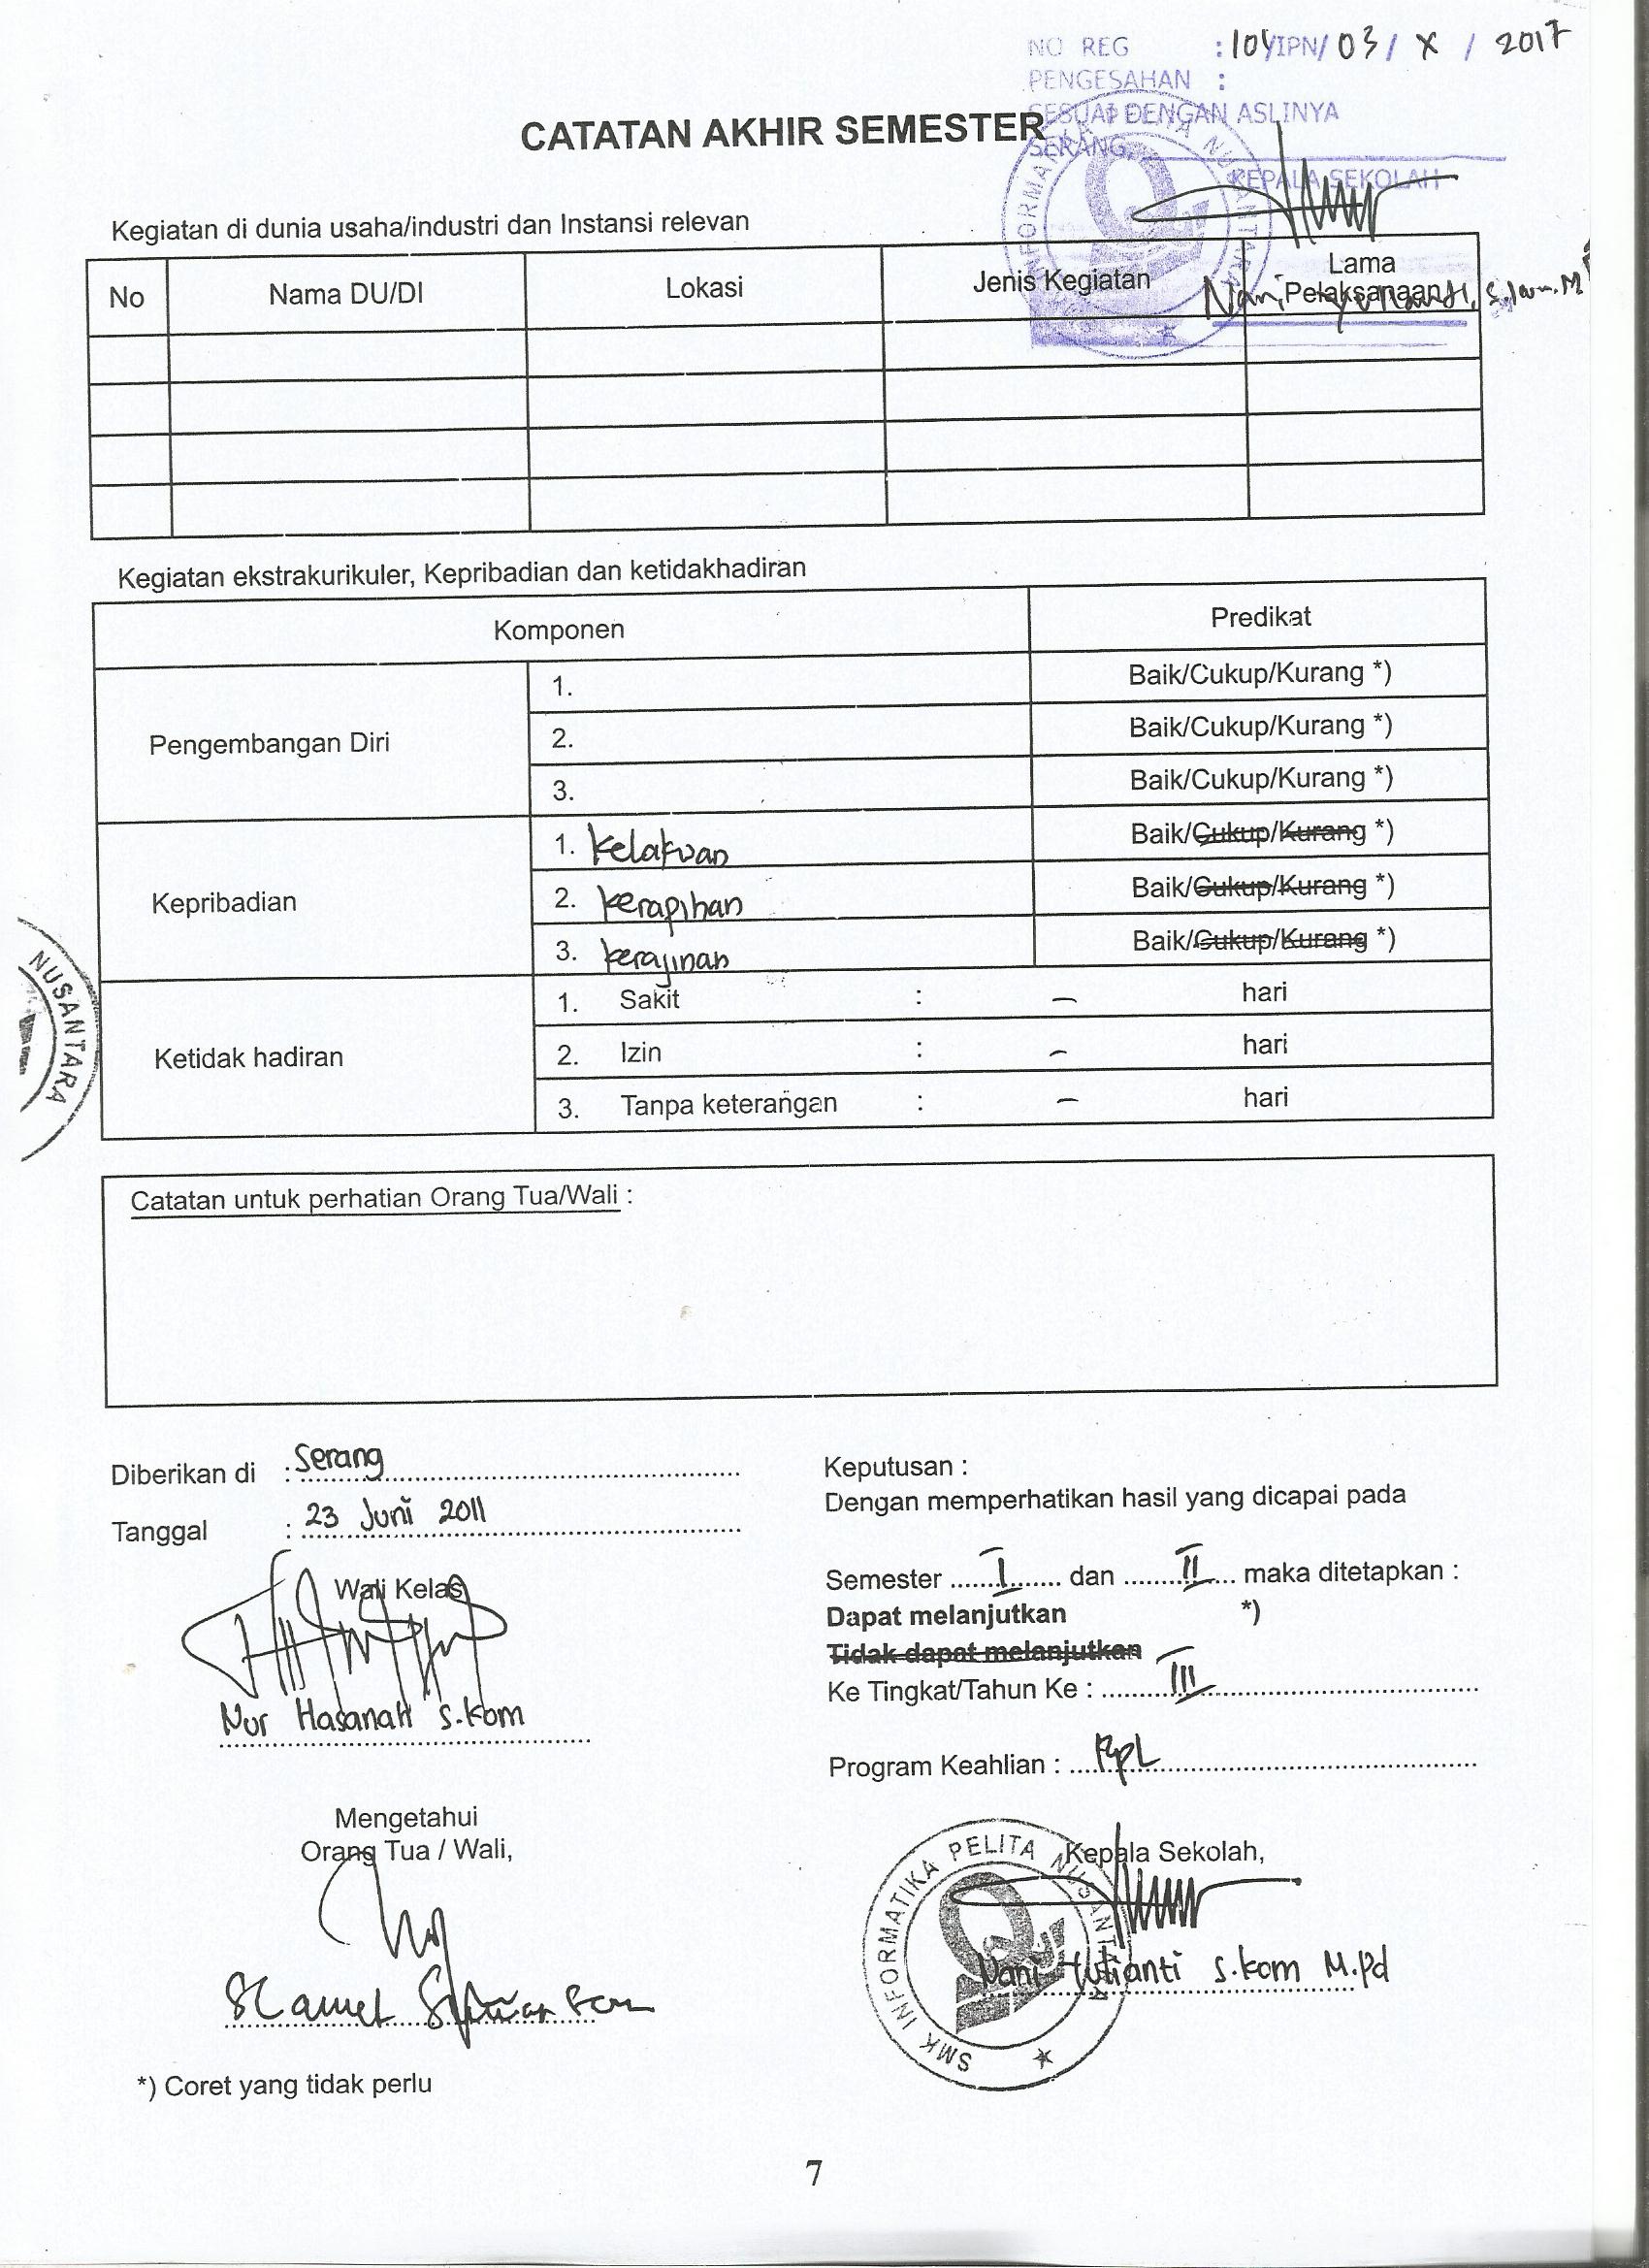 NO REG : 104/IPN/ 03 / X / 2017
PENGESAHAN :
SESUAI DENGAN ASLINYA
SERANG,
KEPALA SEKOLAH
CATATAN AKHIR SEMESTER
Kegiatan di dunia usaha/industri dan Instansi relevan
No Nama DU/DI Lokasi Jenis Kegiatan Lama Pelaksanaan
Kegiatan ekstrakurikuler, Kepribadian dan ketidakhadiran
Komponen Predikat
Pengembangan Diri
1. Baik/Cukup/Kurang *)
2. Baik/Cukup/Kurang *)
3. Baik/Cukup/Kurang *)
Kepribadian
1. Kelakuan Baik/Cukup/Kurang *)
2. Kerapihan Baik/Cukup/Kurang *)
3. Kerajinan Baik/Cukup/Kurang *)
Ketidak hadiran
1. Sakit : – hari
2. Izin : – hari
3. Tanpa keterangan : – hari
NUSANTARA
Catatan untuk perhatian Orang Tua/Wali :
Diberikan di : Serang
Tanggal : 23 Juni 2011
Wali Kelas
Nur Hasanah S.kom
Mengetahui
Orang Tua / Wali,
Slamet
*) Coret yang tidak perlu
Keputusan :
Dengan memperhatikan hasil yang dicapai pada
Semester ....I.... dan ....II.... maka ditetapkan :
Dapat melanjutkan *)
Tidak dapat melanjutkan
Ke Tingkat/Tahun Ke : III
Program Keahlian : RPL
Kepala Sekolah,
SMK INFORMATIKA PELITA NUSANTARA
Nani Yulianti S.kom M.Pd
7